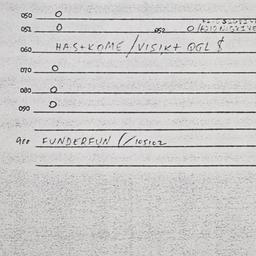 050 0
051 0 052
060 HASTKOME/VISIKT OGL $
070 0
080 0
090 0
900 FUNDERFUN